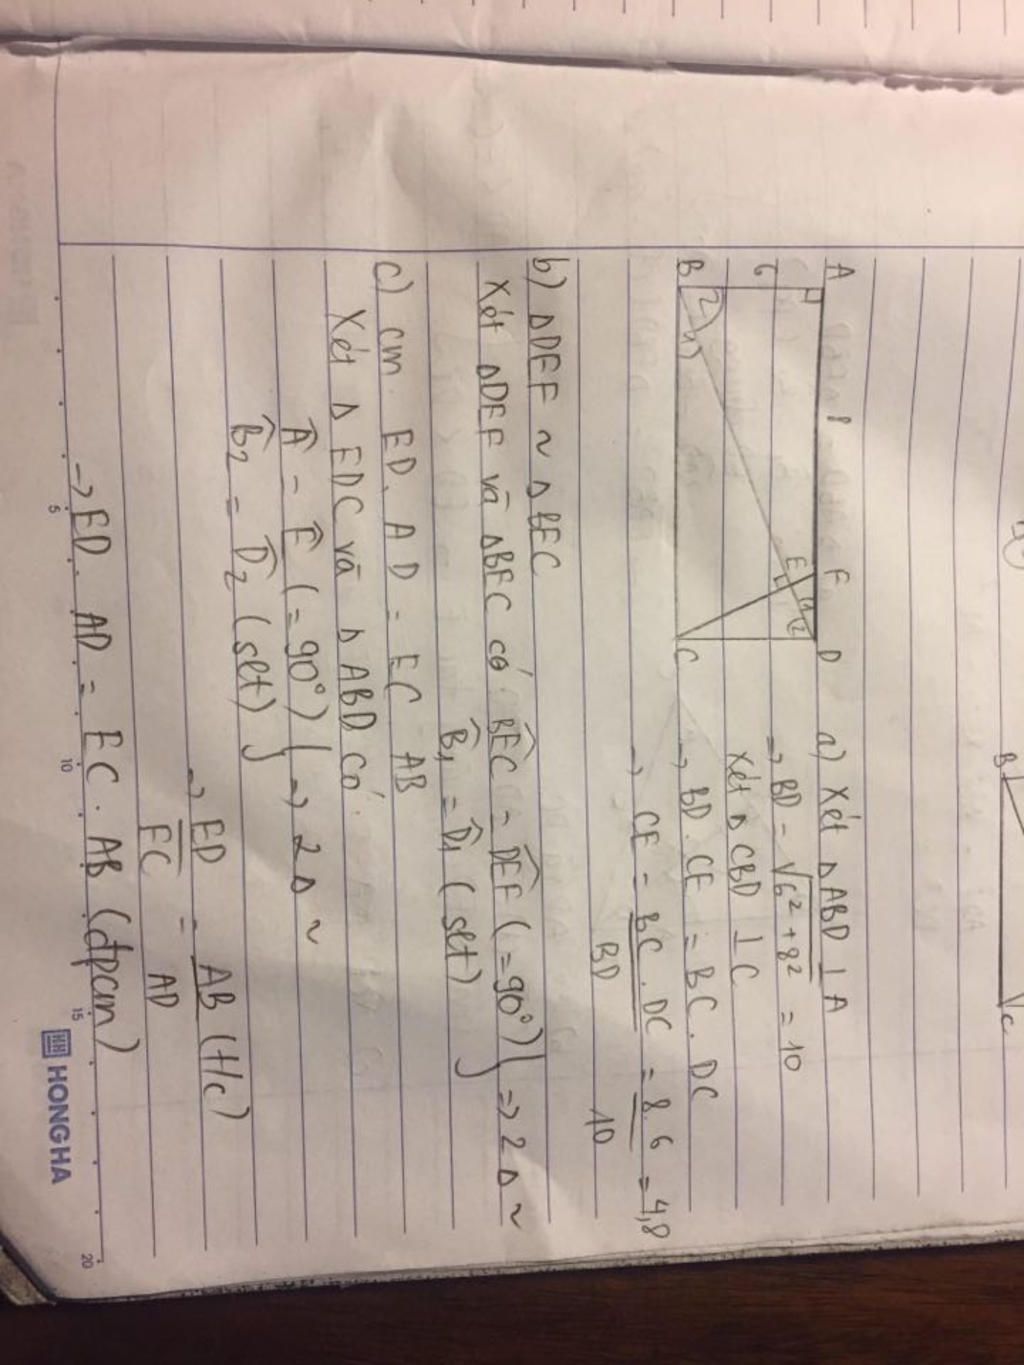 A 8 F D
6
B 2 1 E 1 2 C
a) Xét Δ ABD ⊥ A
=> BD = √6² + 8² = 10
Xét Δ CBD ⊥ C
-> BD . CE = BC . DC
-> CE = BC . DC / BD = 8 . 6 / 10 = 4,8
b) Δ DEF ~ Δ BEC
Xét Δ DEF và Δ BEC có BEC = DEF (= 90°) } => 2 Δ ~
B₁ = D₁ (slt)
c) cm . ED . AD = EC AB
Xét Δ EDC và Δ ABD có
A = E (= 90°) } -> 2 Δ ~
B₂ = D₂ (slt)
-> ED / EC = AB / AD (t/c)
-> ED . AD = EC . AB (đpcm)
5 10 15 20
HONGHA
B C